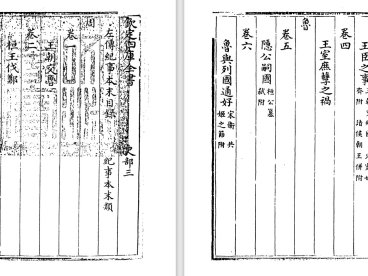 欽定四庫全書 史部三
左傳紀事本末目錄 紀事本末類
周
卷一
王朝交魯
卷二
桓王伐鄭
王臣之事
附 諸侯朝王併附
卷四
王室庶孽之禍
魯
卷五
隱公嗣國 桓公篡弑附
卷六
魯與列國通好 宋衛共姬之節附